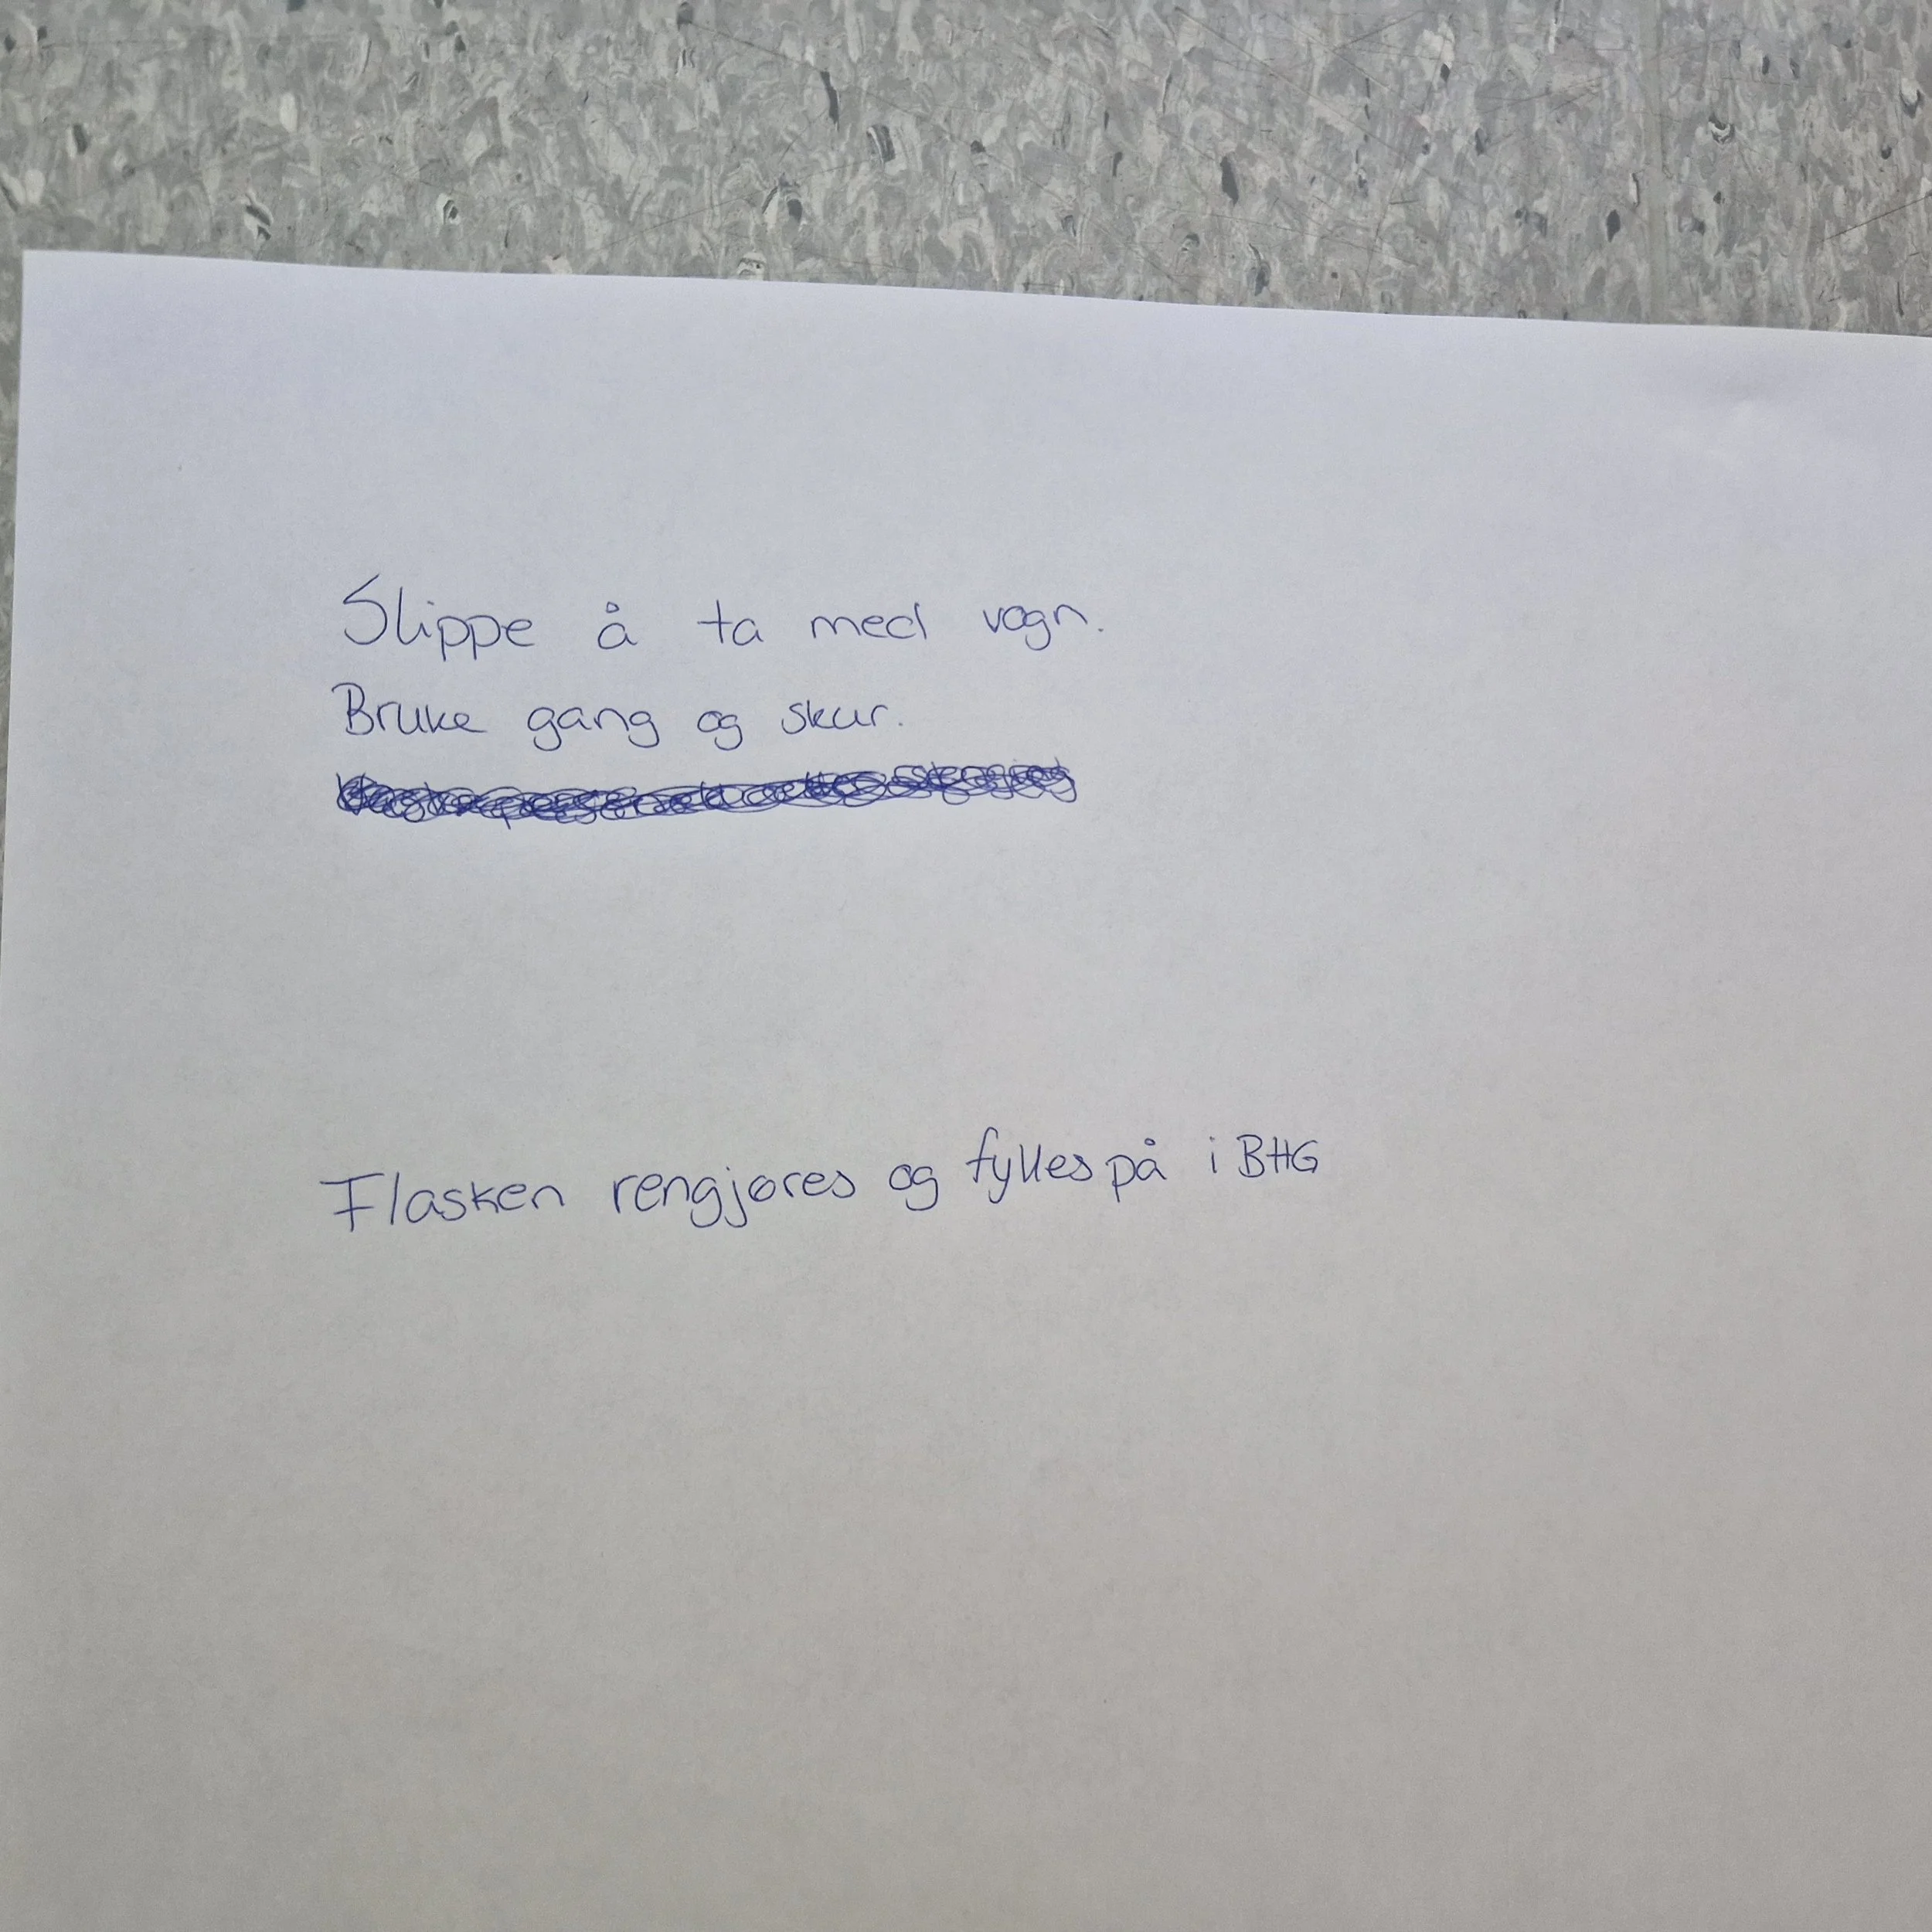 Slippe å ta med vogn.
Bruke gang og skur.
Flasken rengjøres og fylles på i BHG